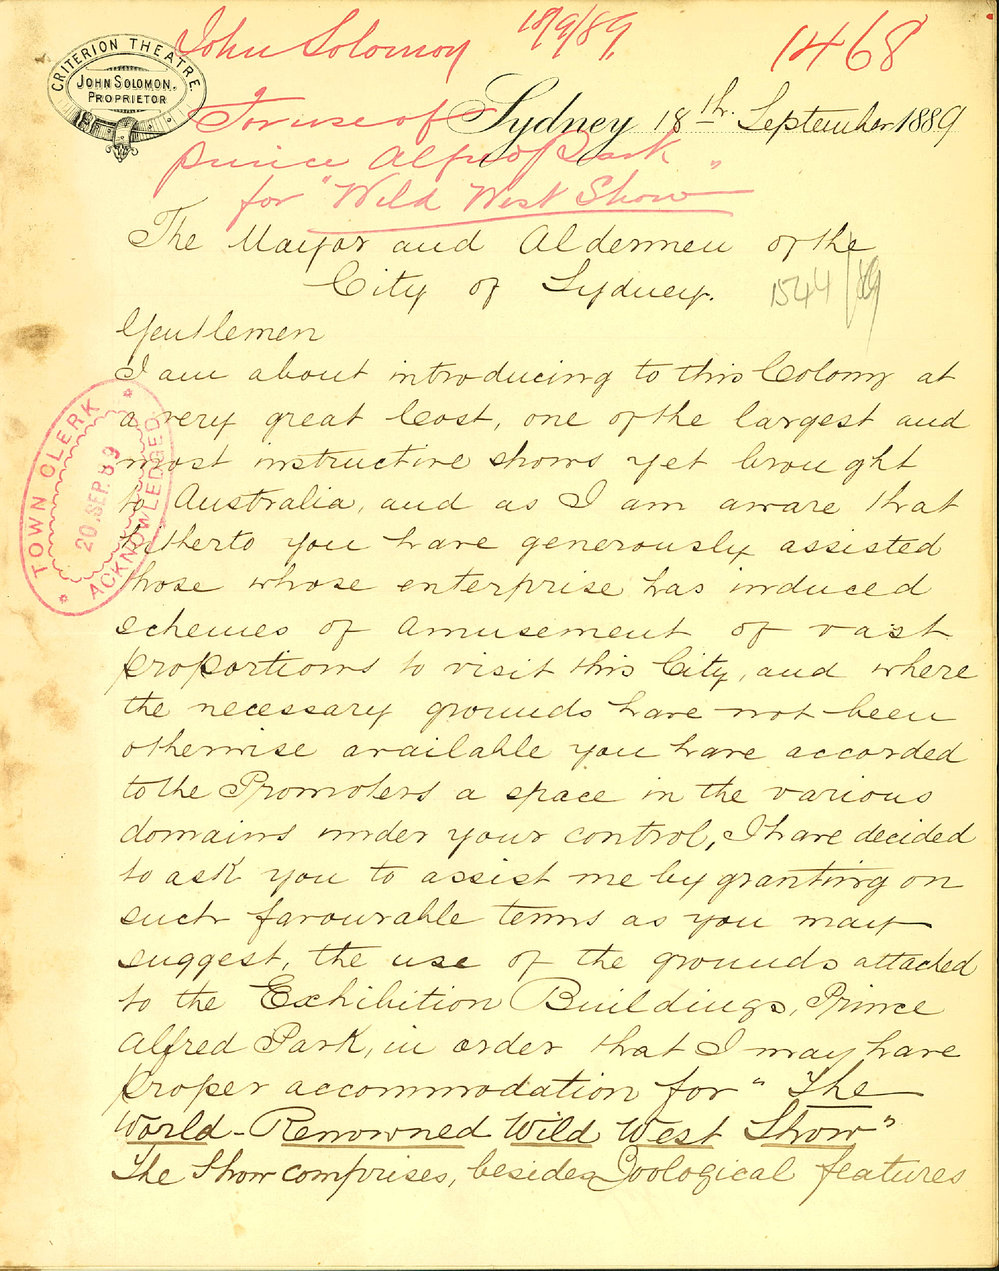 John Solomon 18/9/89 1468
CRITERION THEATRE.
JOHN SOLOMON,
PROPRIETOR
For use of
Prince Alfred Park
for "Wild West Show"
Sydney 18th. September 1889
The Mayor and Aldermen of the
City of Sydney.
1544/89
Gentlemen
I am about introducing to this Colony at
a very great Cost, one of the largest and
most instructive shows yet brought
to Australia, and as I am aware that
hitherto you have generously assisted
those whose enterprise has induced
schemes of amusement of vast
proportions to visit this City, and where
the necessary grounds have not been
otherwise available you have accorded
to the Promoters a space in the various
domains under your control, I have decided
to ask you to assist me by granting on
such favourable terms as you may
suggest, the use of the grounds attached
to the Exhibition Buildings, Prince
Alfred Park, in order that I may have
proper accommodation for "The
World-Renowned Wild West Show"
The Show comprises, besides Zoological features
TOWN CLERK
20.SEP.89
ACKNOWLEDGED